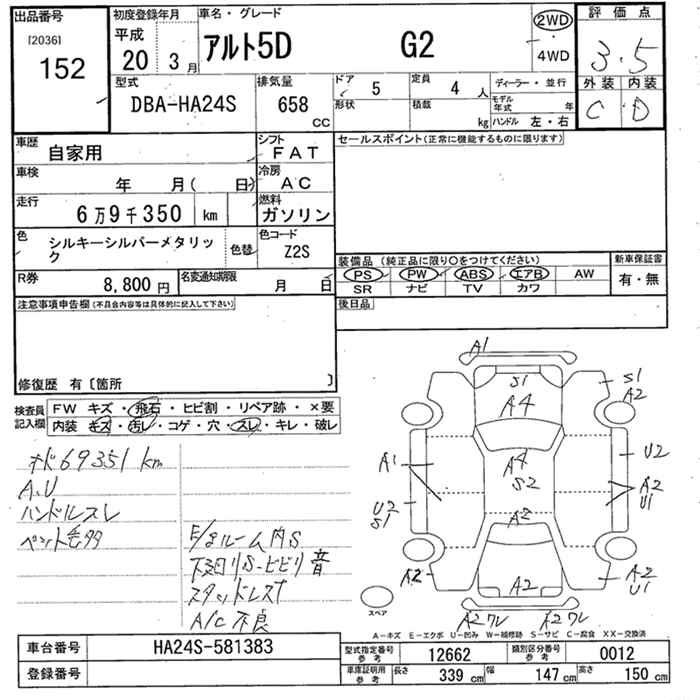 出品番号
[2036]
152
初度登録年月
平成
20 3月
車名・グレード
アルト5D G2
2WD
4WD
評価点
3.5
外装 内装
C D
型式
DBA-HA24S
排気量
658 CC
ドア 5
形状
定員 4 人
積載 kg
ディーラー・並行
モデル年式 年
ハンドル 左・右
車歴 自家用
シフト FAT
車検 年 月( 日)
冷房 AC
走行 6万9千350 km
燃料 ガソリン
色 シルキーシルバーメタリック
色替
色コード Z2S
R券 8,800円
名変通知期限 月 日
セールスポイント(正常に機能するものに限ります)
装備品 (純正品に限り○をつけてください)
PS PW ABS エアB AW
SR ナビ TV カワ
新車保証書
有・無
後日品
注意事項申告欄(不具合内容等は具体的に記入して下さい)
修復歴 有〔箇所 〕
検査員記入欄
FW キズ・飛石・ヒビ割・リペア跡・×要
内装 キズ・汚レ・コゲ・穴・スレ・キレ・破レ
69351 km
A,U
ハンドルスレ
ペット毛多
E/gルーム内S
下廻りS-ビビリ音
スタッドレス
A/C不良
A1
S1
A4
S1
A2
A4
S2
A1
U2
A2
U1
U2
S1
A2
A2
A2
A2
U1
A2ワレ A2ワレ
スペア
A-キズ E-エクボ U-凹み W-補修跡 S-サビ C-腐食 XX-交換済
車台番号 HA24S-581383
登録番号
型式指定番号 参考 12662
類別区分番号 参考 0012
車庫証明用 参考 長さ 339 cm 幅 147 cm 高さ 150 cm